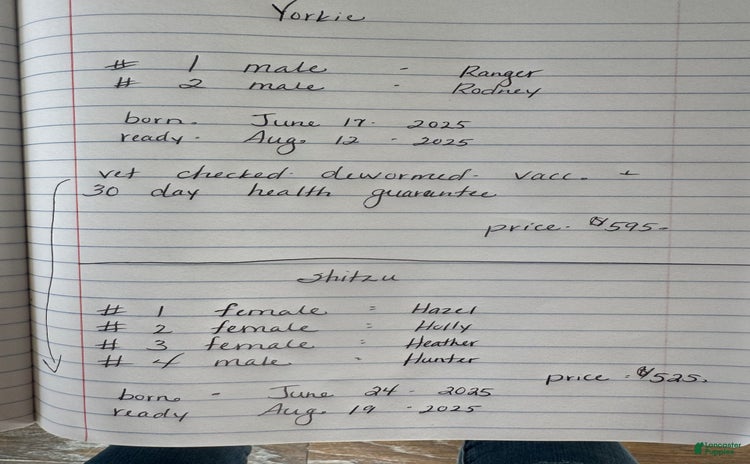 Yorkie
# 1 male - Ranger
# 2 male - Rodney
born. June 17. 2025
ready - Aug. 12 - 2025
vet checked. dewormed. vacc. +
30 day health guarantee
price. $595.
Shitzu
# 1 female = Hazel
# 2 female = Holly
# 3 female = Heather
# 4 male - Hunter
price. $525.
born. - June 24 - 2025
ready Aug. 19 - 2025
Lancaster
Puppies